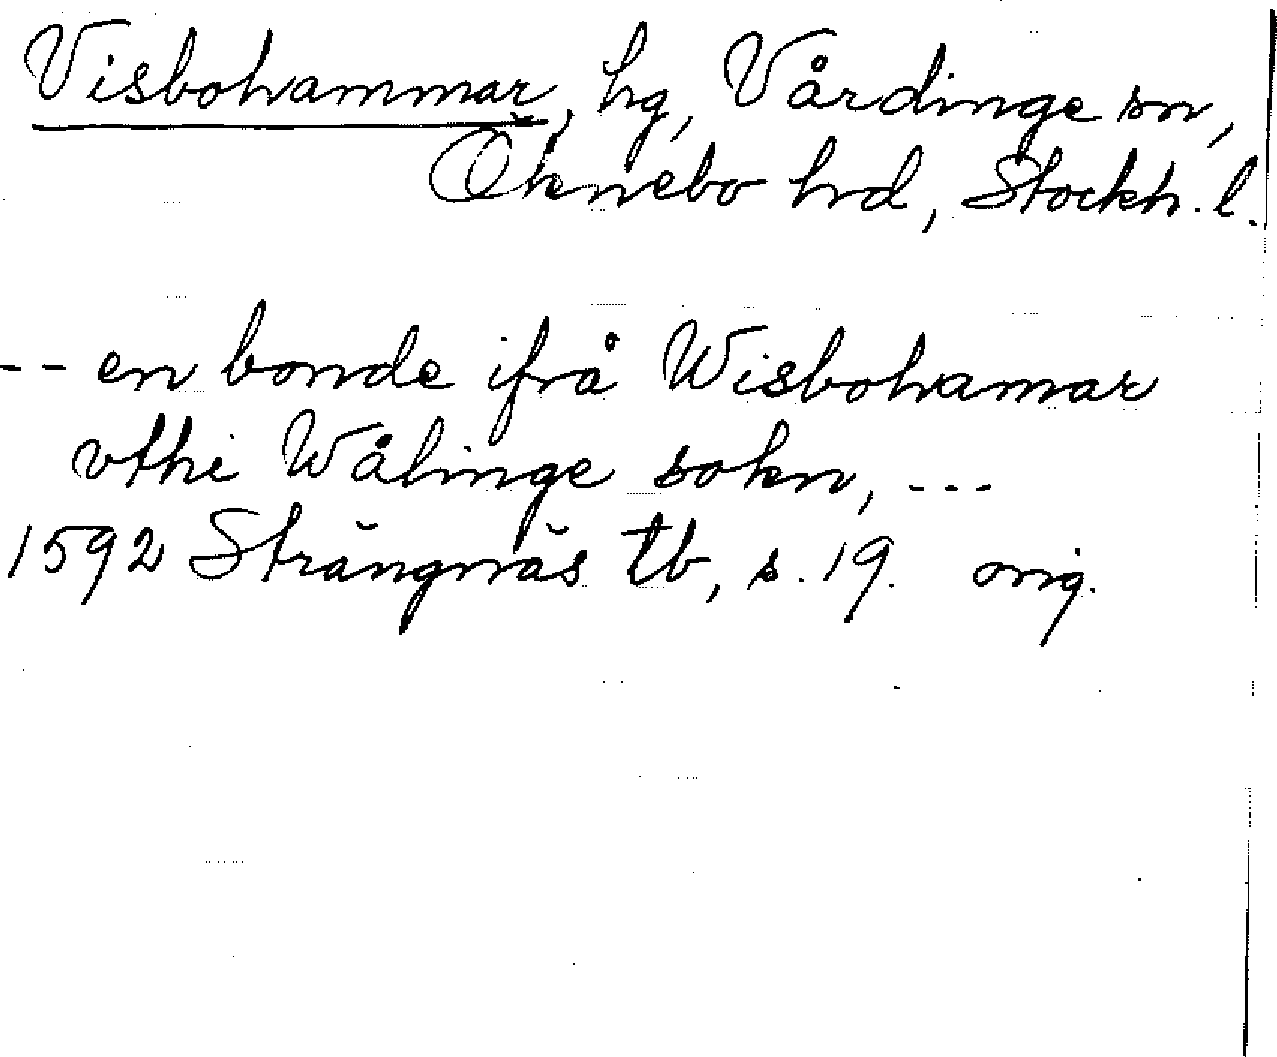 Visbohammar, hg, Vårdinge sn,
Öknebo hrd, Stockh. l.
-- en bonde ifrå Wisbohamar
vthi Wålinge sokn, ---
1592 Strängnäs tb, s. 19. orig.